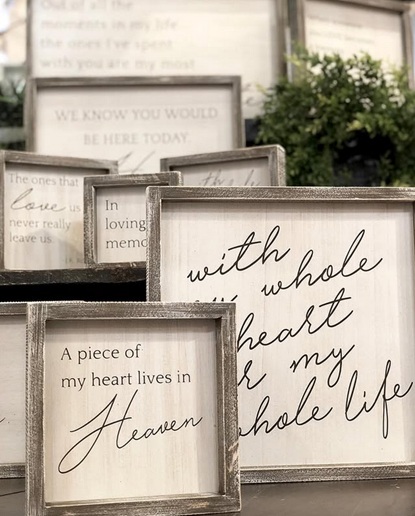 Out of all the
moments in my life
the ones I've spent
with you are my most
WE KNOW YOU WOULD
BE HERE TODAY.
The ones that
love us
never really
leave us.
In
loving
memo
with
whole
heart
my
whole life
A piece of
my heart lives in
Heaven